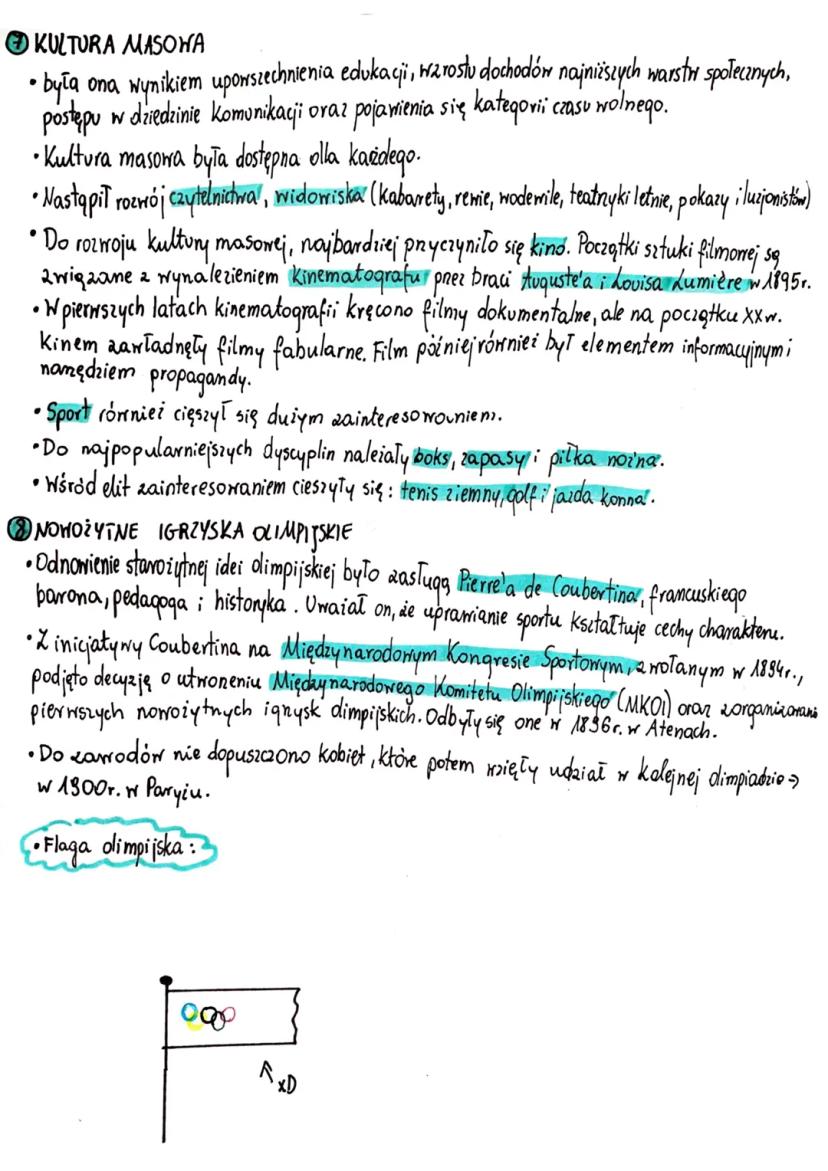 7 KULTURA MASOWA
• była ona wynikiem upowszechnienia edukacji, wzrostu dochodów najniższych warstw społecznych,
postępu w dziedzinie komunikacji oraz pojawienia się kategorii czasu wolnego.
• Kultura masowa była dostępna dla każdego.
• Nastąpił rozwój czytelnictwa, widowiska (kabarety, rewie, wodewile, teatrzyki letnie, pokazy iluzjonistów)
• Do rozwoju kultury masowej, najbardziej przyczyniło się kino. Początki sztuki filmowej są
związane z wynalezieniem kinematografu przez braci Auguste'a i Louisa Lumière w 1895r.
• W pierwszych latach kinematografii kręcono filmy dokumentalne, ale na początku XX w.
kinem zawładnęły filmy fabularne. Film później również był elementem informacyjnym i
narzędziem propagandy.
• Sport również cieszył się dużym zainteresowaniem.
• Do najpopularniejszych dyscyplin należały boks, zapasy i piłka nożna.
• Wśród elit zainteresowaniem cieszyły się: tenis ziemny, golf i jazda konna.
8 NOWOŻYTNE IGRZYSKA OLIMPIJSKIE
• Odnowienie starożytnej idei olimpijskiej było zasługą Pierre'a de Coubertina, francuskiego
barona, pedagoga i historyka. Uważał on, że uprawianie sportu kształtuje cechy charakteru.
• Z inicjatywy Coubertina na Międzynarodowym Kongresie Sportowym, zwołanym w 1894r.,
podjęto decyzję o utworzeniu Międzynarodowego Komitetu Olimpijskiego (MKOl) oraz zorganizowaniu
pierwszych nowożytnych igrzysk olimpijskich. Odbyły się one w 1896r. w Atenach.
• Do zawodów nie dopuszczono kobiet, które potem wzięły udział w kolejnej olimpiadzie →
w 1900r. w Paryżu.
• Flaga olimpijska:
xD